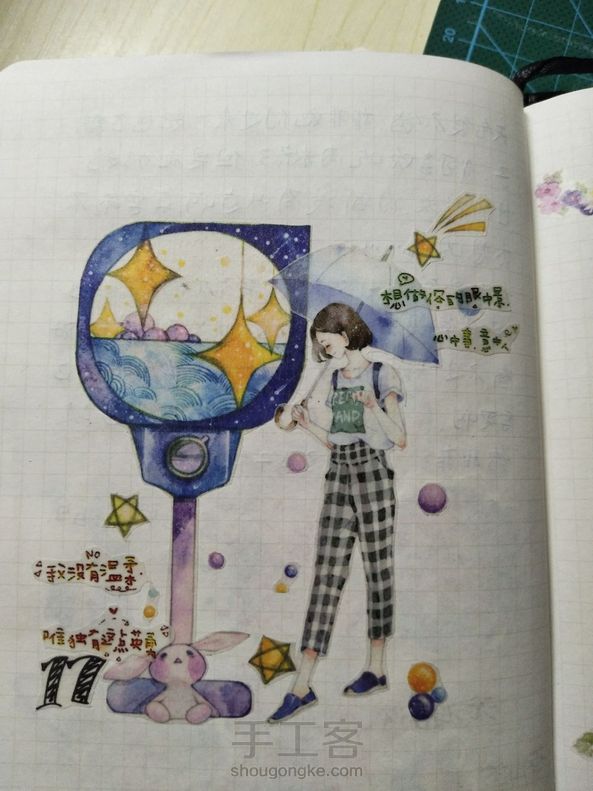 想做你的眼中景
心中意中人
我没有温柔
唯独有这点英勇
17
手工客
shougongke.com